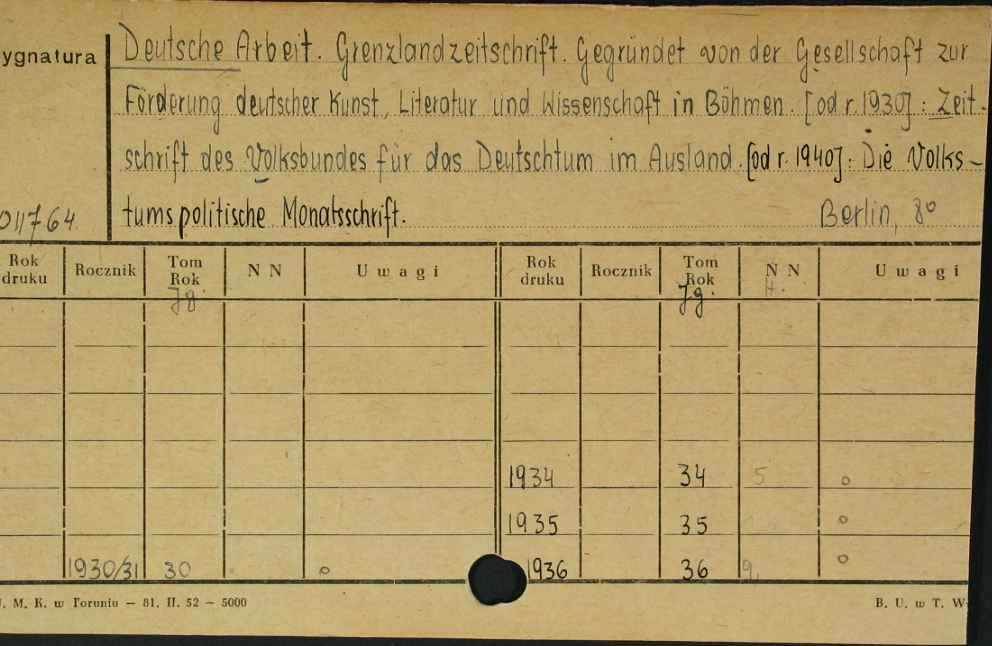 ygnatura Deutsche Arbeit. Grenzlandzeitschrift. Gegründet von der Gesellschaft zur
Förderung deutscher Kunst, Literatur und Wissenschaft in Böhmen. [od r. 1930]: Zeit-
schrift des Volksbundes für das Deutschtum im Ausland. [od r. 1940]: Die Volks-
011764 tumspolitische Monatsschrift. Berlin, 8°
Rok druku Rocznik Tom Rok Jg. N N U w a g i Rok druku Rocznik Tom Rok Jg. N N H. U w a g i
1934 34 5 o
1935 35 o
1930/31 30 o 1936 36 9. o
. M. K. w Toruniu — 81. II. 52 — 5000 B. U. w T. W